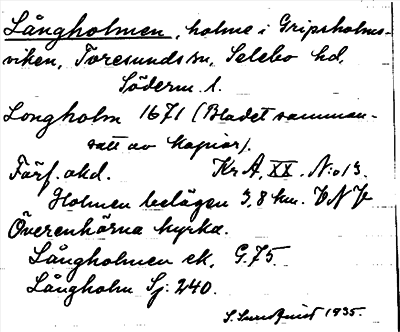 Långholmen, holme i Gripsholms-
viken, Toresunds sn, Selebo hd,
Söderm. l.
Longholm 1671 (Bladet samman-
satt av kopior).
Förf. okd. Kr A, XX. N:o 13.
Holmen belägen 3,8 km. VNV
Överenhörna kyrka.
Långholmen ek. G.75
Långholm Sj. 240.
S. Sundquist 1935.